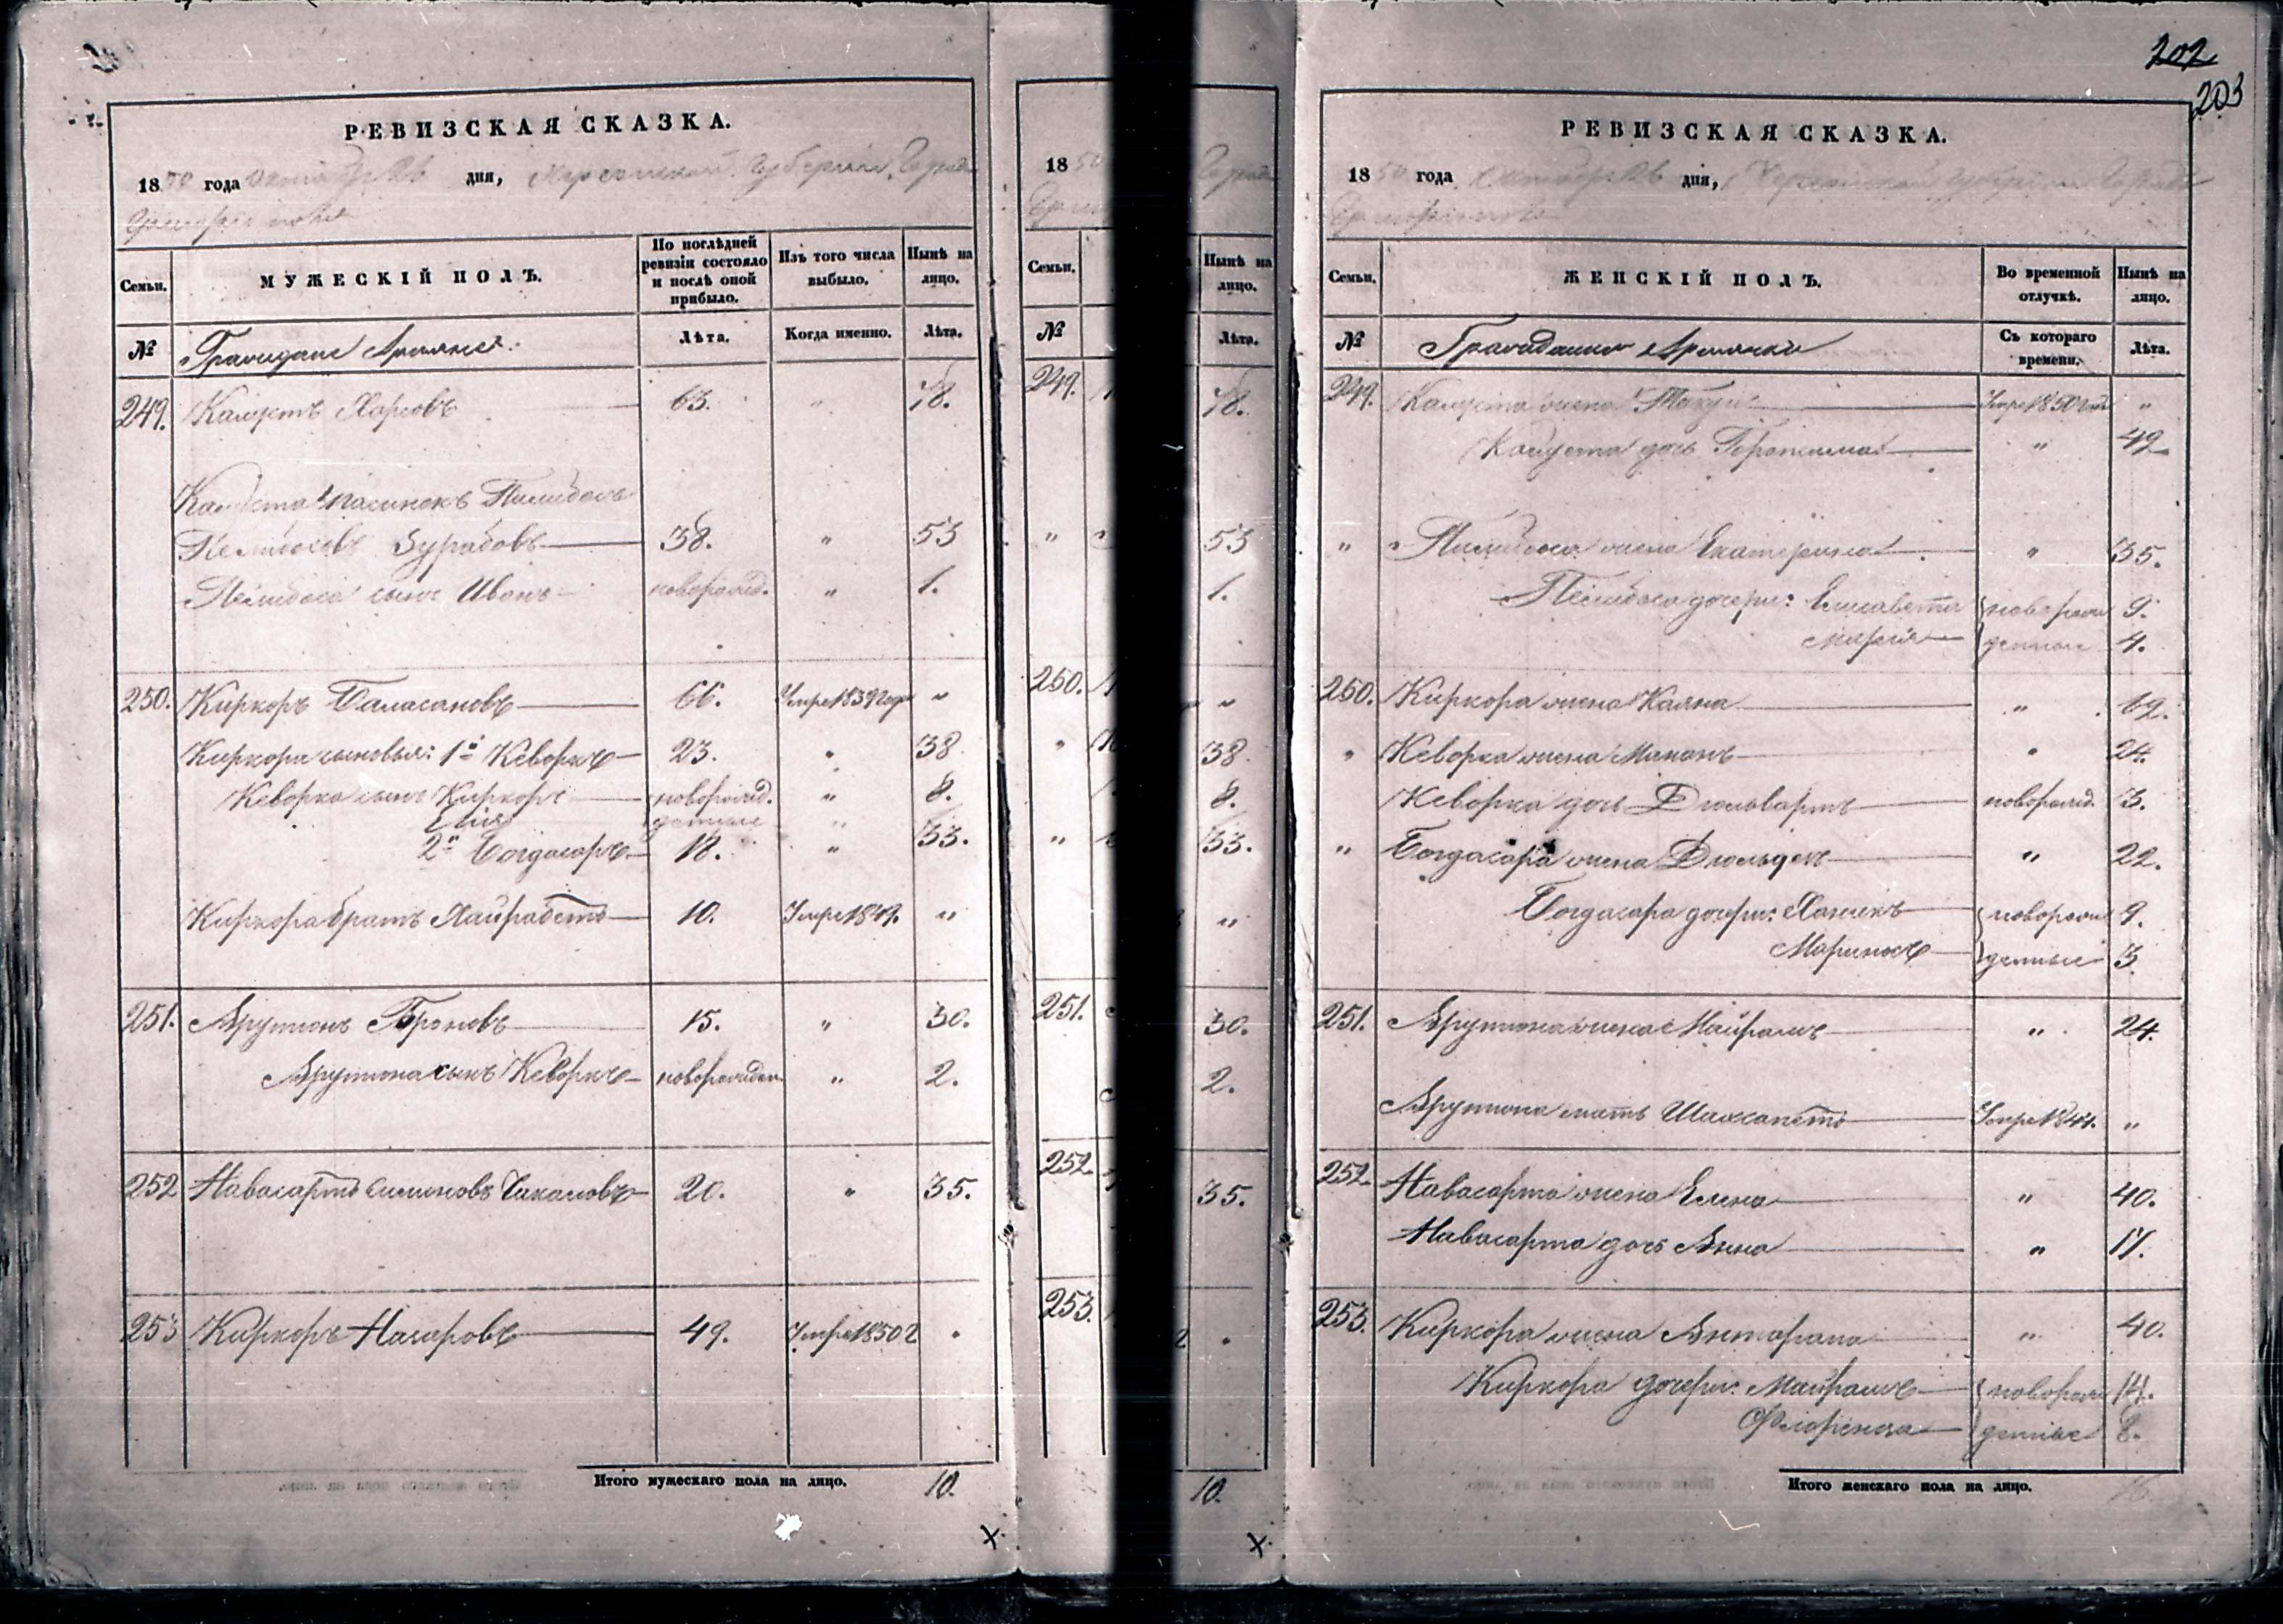 РЕВИЗСКАЯ СКАЗКА.
1850 года дня, Херсонской Губернии, Города
Семьи.
МУЖЕСКІЙ ПОЛЪ.
По послѣдней ревизіи состояло и послѣ оной прибыло.
Изъ того числа выбыло.
Нынѣ на лицо.
№
Граждане Армяне.
Лѣта.
Когда именно.
Лѣта.
249. Калустъ 63. " 78.
Калуста пасынокъ
Зурабовъ 38. " 53
сынъ Иванъ новорожд. " 1.
250. Киркоръ Баласановъ 66. Умре 1839 года "
Киркора сыновья: 1й Кеворкъ 23. " 38
Кеворка сынъ Киркоръ новорожд. " 8.
Илия денные "
2й Богдасаръ 18. " 33.
Киркора братъ Хайрабетъ 10. Умре 1849. "
251. Арутюнъ 15. " 30.
Арутюна сынъ Кеворкъ новорожден " 2.
252 Навасартъ Симоновъ Чакаловъ 20. " 35.
253 Киркоръ Назаровъ 49. Умре 1850 г "
Итого мужескаго пола на лицо. 10.
18 50
Семьи.
Нынѣ на лицо.
№
Лѣта.
249. 78.
" 53
1.
250. "
" 38.
8.
" 33.
"
251. 30.
2.
252. 35.
253.
10.
202
203
РЕВИЗСКАЯ СКАЗКА.
1850 года дня, Херсонской Губернии Города
Семьи.
ЖЕНСКІЙ ПОЛЪ.
Во временной отлучкѣ.
Нынѣ на лицо.
№
Гражданки Армянки
Съ котораго времени.
Лѣта.
249. Калуста жена Умре 1850 "
Калуста дочь " 42
" жена Екатерина " 35.
дочери: Елисавета новорож 9.
Мария денные 4.
250. Киркора жена Каяна " 62.
" Кеворка жена Мананъ " 24.
Кеворка дочь Дюльвартъ новорожд. 3.
" Богдасара жена " 22.
Богдасара дочери: новорож 9.
Мариносъ денные 3.
251. Арутюна жена Майрамъ " 24.
Арутюна мать Умре 1841. "
252. Навасарта жена Елена " 40.
Навасарта дочь Анна " 17.
253. Киркора жена " 40.
Киркора дочери: Майрамъ новорож 14.
денные 8.
Итого женскаго пола на лицо. 16.